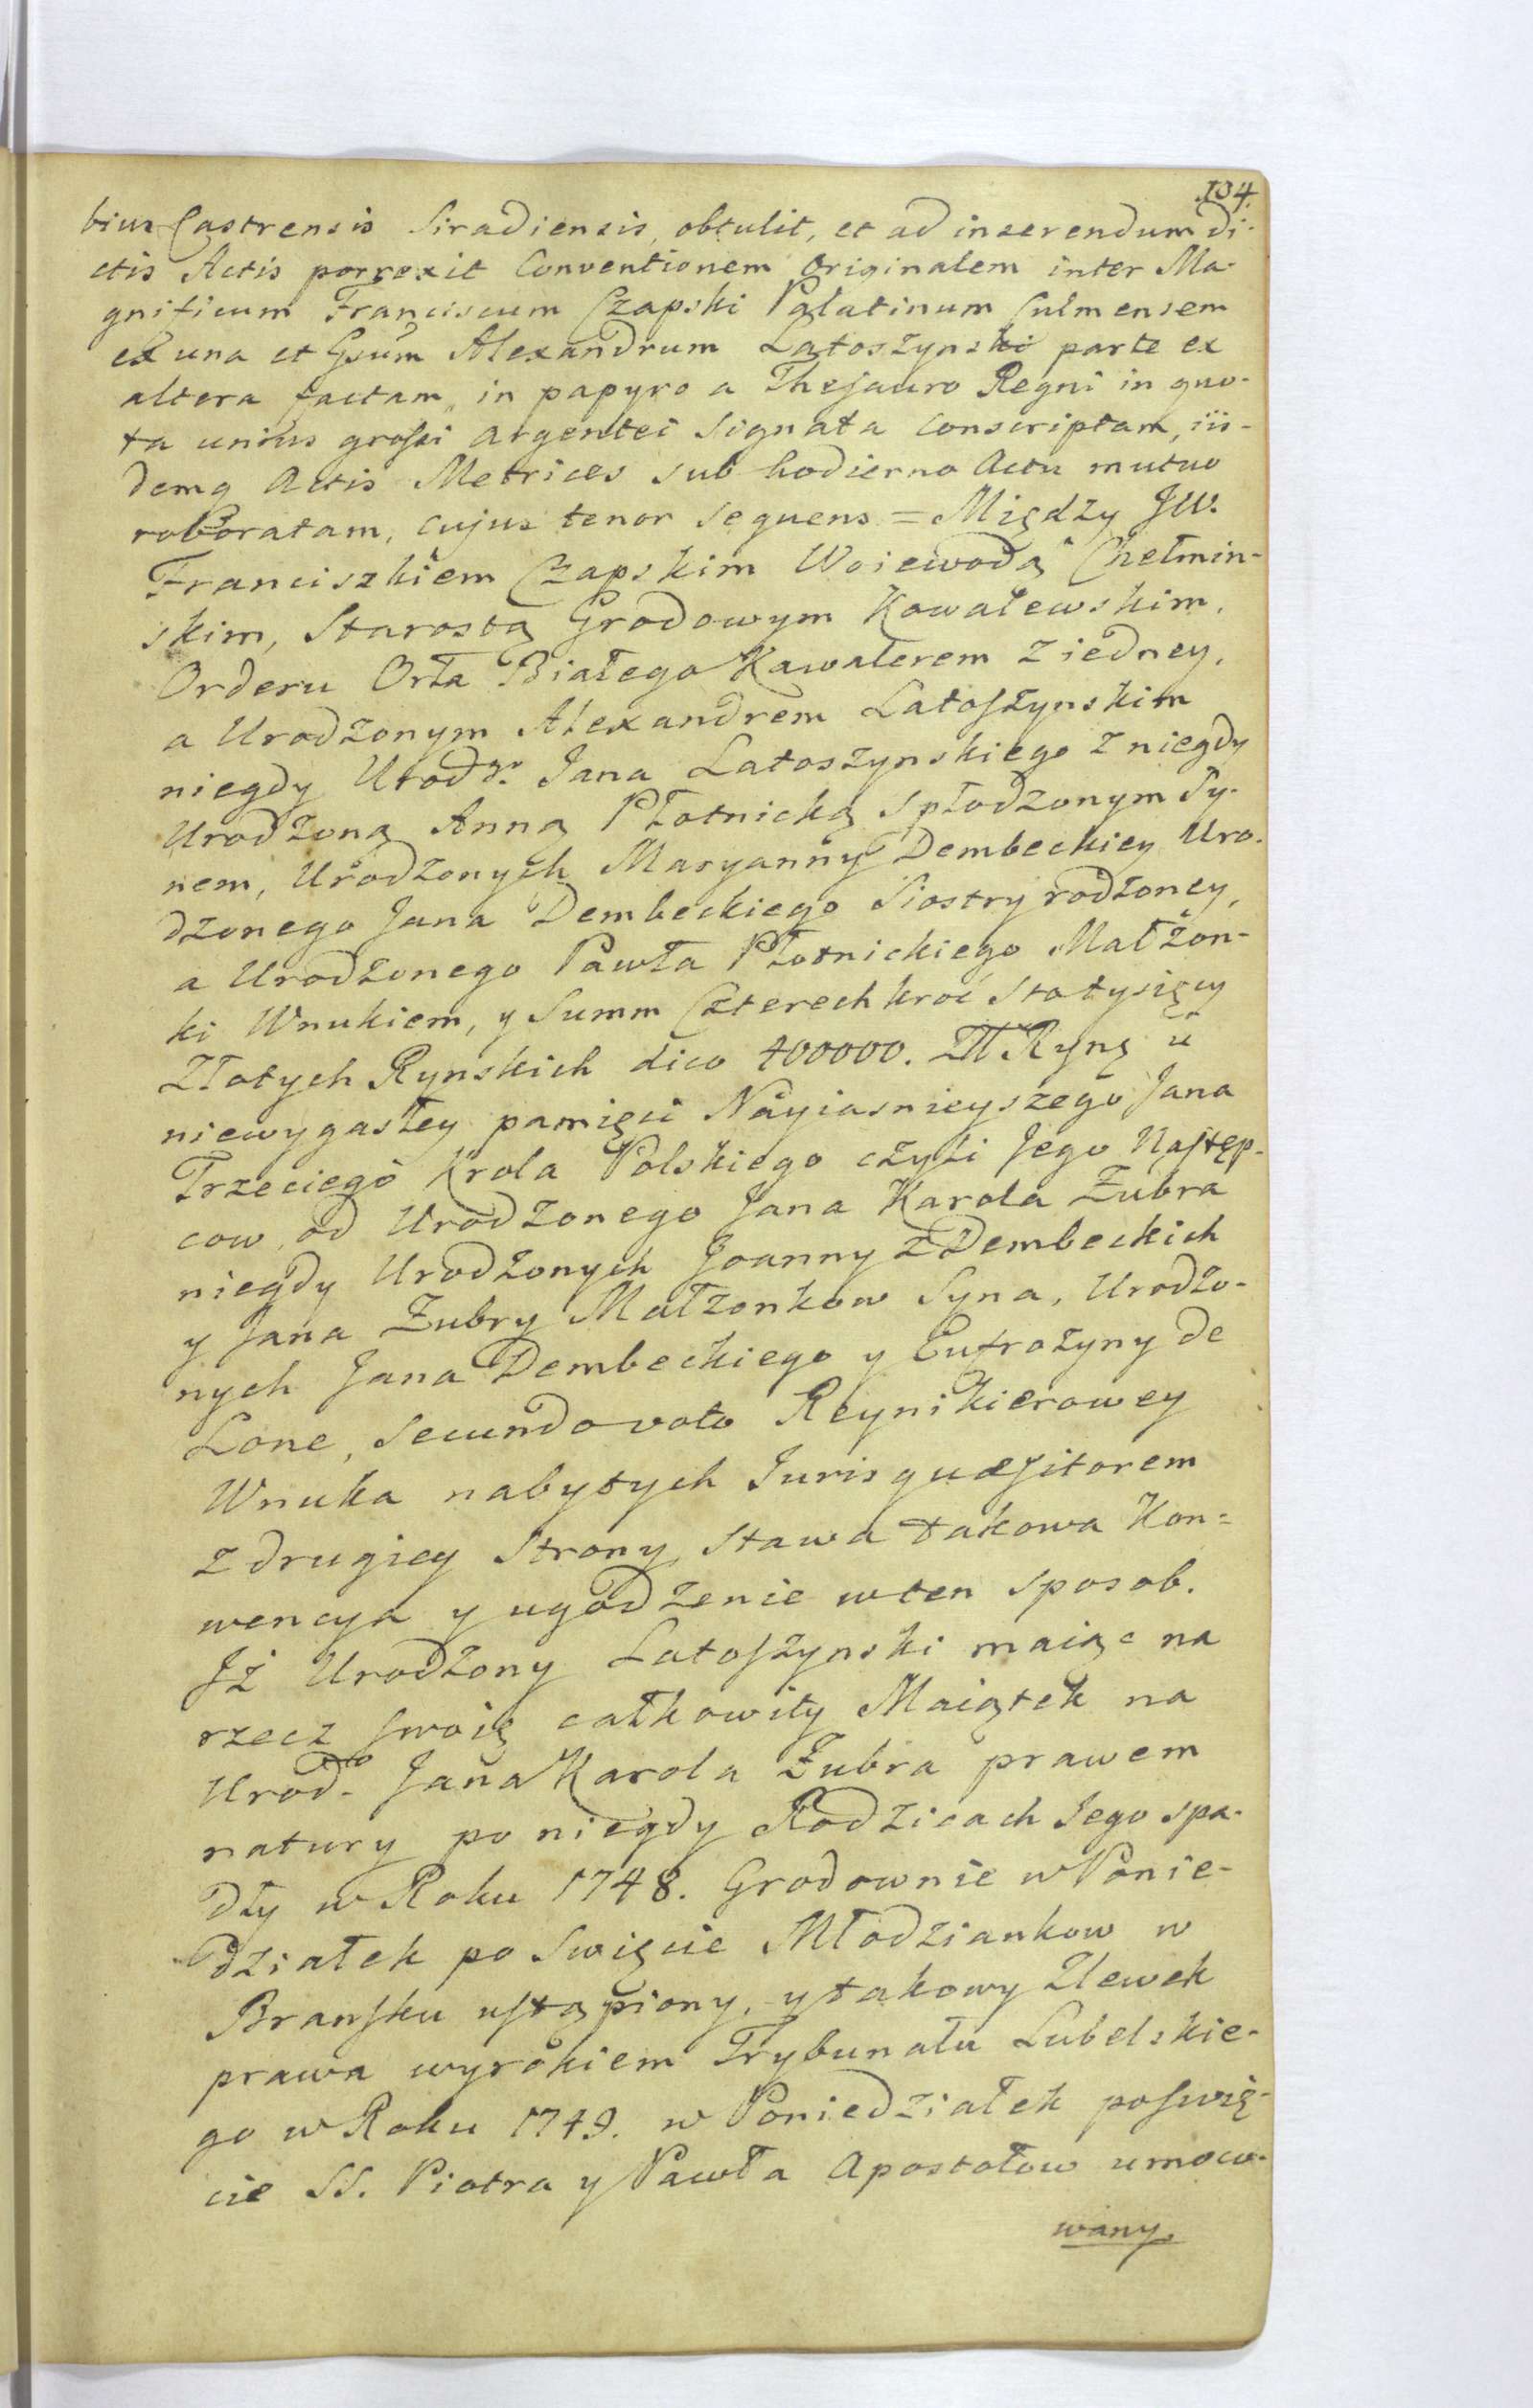 104.
bius Castrensis Siradiensis, obtulit, et ad inserendum di-
ctis Actis porrexit Conventionem Originalem inter Ma-
gnificum Franciscum Czapski Palatinum Culmensem
ex una et Gsum Alexandrum Latoszynski parte ex
altera factam, in papyro a Thesauro Regni in quo-
ta unius grossi argentei Signata Conscriptam, iis-
demq Actis Metrices sub hodierno Actu mutuo
roboratam, cujus tenor sequens = Między JW.
Franciszkiem Czapskim Woiewodą Chełmin-
skim, Starostą Grodowym Kowalewskim,
Orderu Orła Białego Kawalerem z iedney,
a Urodzonym Alexandrem Latoszynskim
niegdy Urodzgo Jana Latoszynskiego z niegdy
Urodzoną Anną Płotnicką Spłodzonym Sy-
nem, Urodzonych Maryanny Dembeckiey Uro-
dzonego Jana Dembeckiego Siostry rodzoney,
a Urodzonego Pawła Płotnickiego Małżon-
ki Wnukiem, y Summ Czterechkroć Stotysięcy
Złotych Rynskich dico 400000. Złł Ryng u
niewygasłey pamięci Nayiasnieyszego Jana
Trzeciego Krola Polskiego czyli Jego Następ-
cow, od Urodzonego Jana Karola Zubra
niegdy Urodzonych Joanny z Dembeckich
y Jana Zubry Małzonkow Syna, Urodzo-
nych Jana Dembeckiego y Eufrozyny de
Lone, Secundo voto Reynikierowey
Wnuka nabytych Juris quaesitorem
z drugiey Strony, Stawa takowa Kon-
wencya y ugodzenie wten sposob.
Jż Urodzony Latoszynski maiąc na
rzecz swoię całkowity Maiątek na
Urodo Jana Karola Zubra prawem
natury po niegdy Rodzicach Jego spa-
dły w Roku 1748. Grodownie w Ponie-
działek po Swięcie Młodziankow w
Bransku ustąpiony, y takowy Zlewek
prawa wyrokiem Trybunału Lubelskie-
go w Roku 1749. w Poniedziałek poswię-
cie SS. Piotra y Pawła Apostołow umoco-
wany.